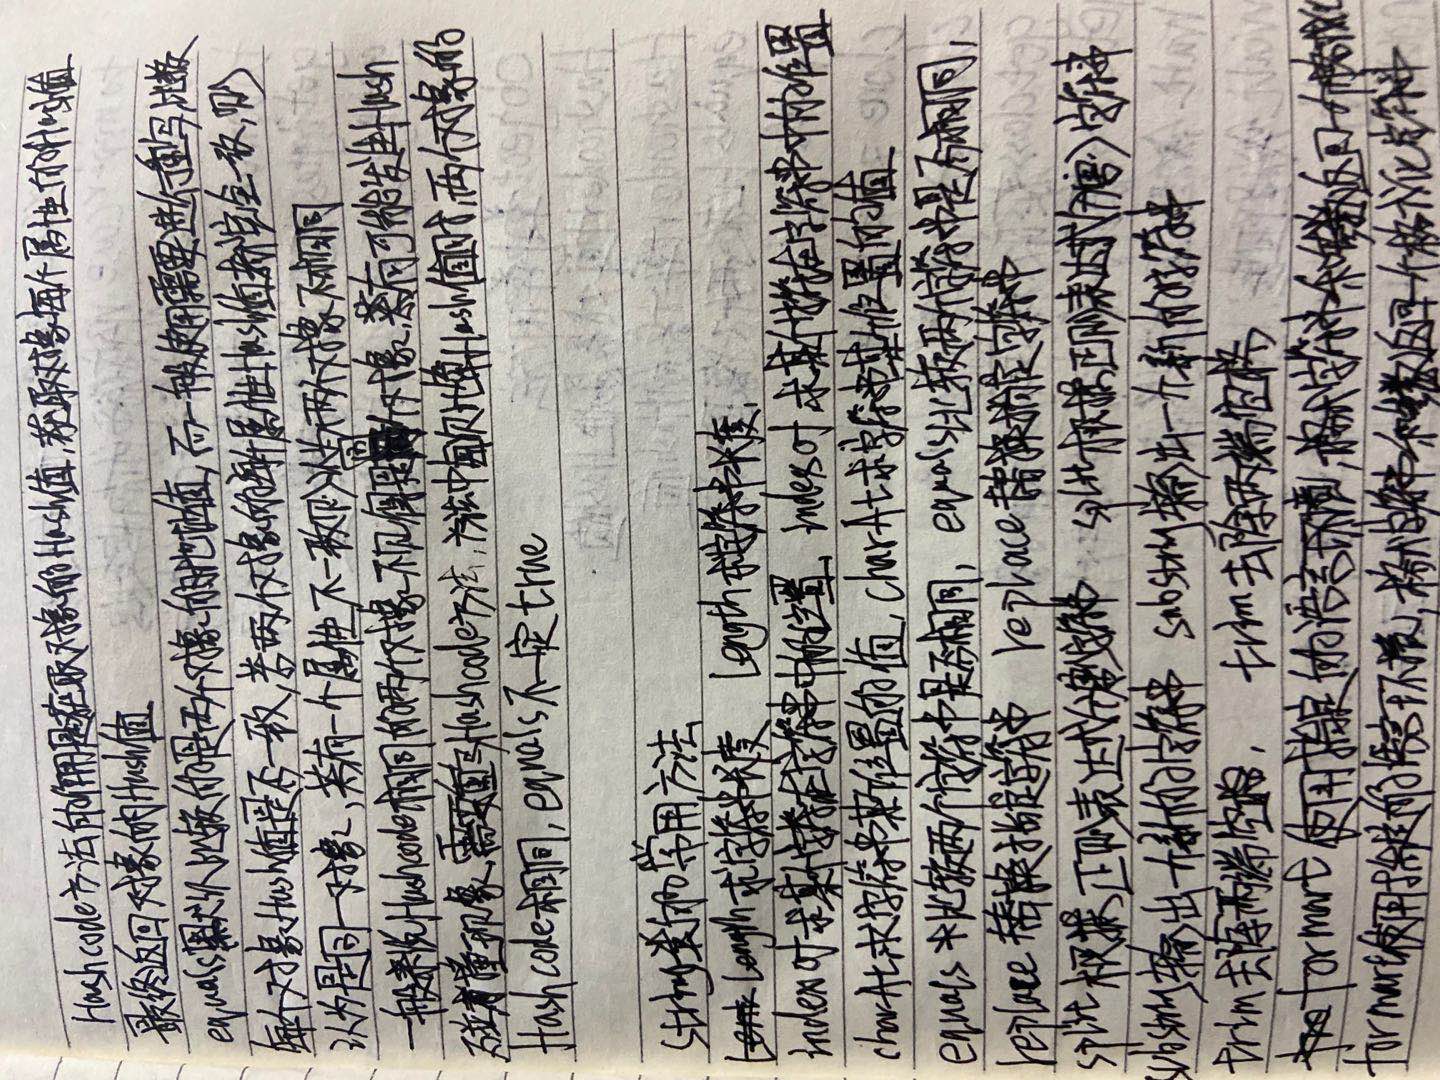 Hashcode方法的作用是获取对象的Hash值,获取对象每个属性的Hash值
最终返回对象的Hash值
equals默认比较的是两个对象的地址值,而一般使用需要进行重写,比较
每个对象Hash值是否一致,若两个对象的每个属性Hash值都完全一致,则
认为是同一对象,若有一个属性不一致则认为两个对象不相同
一般来说Hashcode相同的两个对象不见得是同个对象,若有可能发生Hash
碰撞现象,需要重写Hashcode方法,方法中每次计算Hash值时,两个对象的
Hashcode相同,equals不一定true
string类的常用方法
Length求字符串长度 Length求字符串长度,
indexof求某个字符在字符串中的位置, indexof求某个字符在字符串中的位置
charAt求字符串某个位置的值,charAt求字符串某个位置的值
equals 比较两个字符串是否相同, equals比较两个字符串是否相同,
replace替换指定字符串 replace替换指定字符串
split根据正则表达式分割字符串 split根据正则表达式分割字符串
substring输出一个新的字符串 substring输出一个新的字符串
trim去除两端空格, trim去除两端空格
formart使用指定的语言环境,格式字符串和参数返回一个格式化
formart使用指定的语言环境,格式字符串和参数返回一个格式化字符串